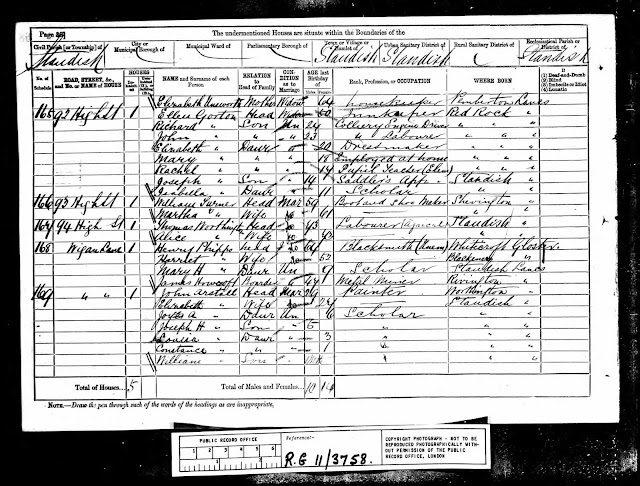 The undermentioned Houses are situate within the Boundaries of the
Page
Civil Parish [or Township] of
Standish
City or
Municipal Borough of
Municipal Ward of
Parliamentary Borough of
Town or Village or
Hamlet of
Standish
Urban Sanitary District of
Standish
Rural Sanitary District of
Ecclesiastical Parish or
District of
Standish
No. of
Schedule
ROAD, STREET, &c.,
and No. or NAME of HOUSE
HOUSES
NAME and Surname of each
Person
RELATION
to
Head of Family
CONDITION
as to
Marriage
AGE last
Birthday
of
Rank, Profession, or OCCUPATION
WHERE BORN
If
(1) Deaf-and-Dumb
(2) Blind
(3) Imbecile or Idiot
(4) Lunatic
Elizabeth Mother Widow Housekeeper Pemberton Lancs
165 92 High St 1 Ellen Gorton Head Widow 50 Innkeeper Red Rock "
Richard " Son Un 24 Colliery Engine Driver " "
John " " " 23 " Labourer " "
Elizabeth " Daur " 20 Dressmaker " "
Mary " " " 18 Employed at home " "
Rachel " " 14 Pupil Teacher " "
Joseph " Son 14 Saddler's App Standish "
Isabella " Daur 11 Scholar " "
166 93 High St 1 William Turner Head Mar 59 Boot and Shoe Maker Shevington "
Martha " Wife " 61 "
167 94 High St 1 Thomas Head " 43 Labourer Standish "
Alice " Wife " 43 " "
168 Wigan Lane 1 Henry Phipps Head " Blacksmith Whitecroft Gloster
Harriet " Wife " 53 Blakeney "
Mary H " Daur Un 9 Scholar Standish Lancs
James Howcroft Boarder 44 Metal Miner Rivington "
169 " " 1 John Head Mar 29 Painter Worthington "
Elizabeth " Wife " Standish "
A " Daur Un 6 Scholar " "
Joseph H " Son " 5 " "
Louisa " Daur 3 " "
Constance " " 1 " "
William " Son " "
Total of Houses... 5
Total of Males and Females... 10 14
NOTE.—Draw the pen through such of the words of the headings as are inappropriate.
PUBLIC RECORD OFFICE
1 2 3 4 5 6
Reference:-
R.G 11/3758.
COPYRIGHT PHOTOGRAPH - NOT TO BE
REPRODUCED PHOTOGRAPHICALLY WITH-
OUT PERMISSION OF THE PUBLIC
RECORD OFFICE, LONDON